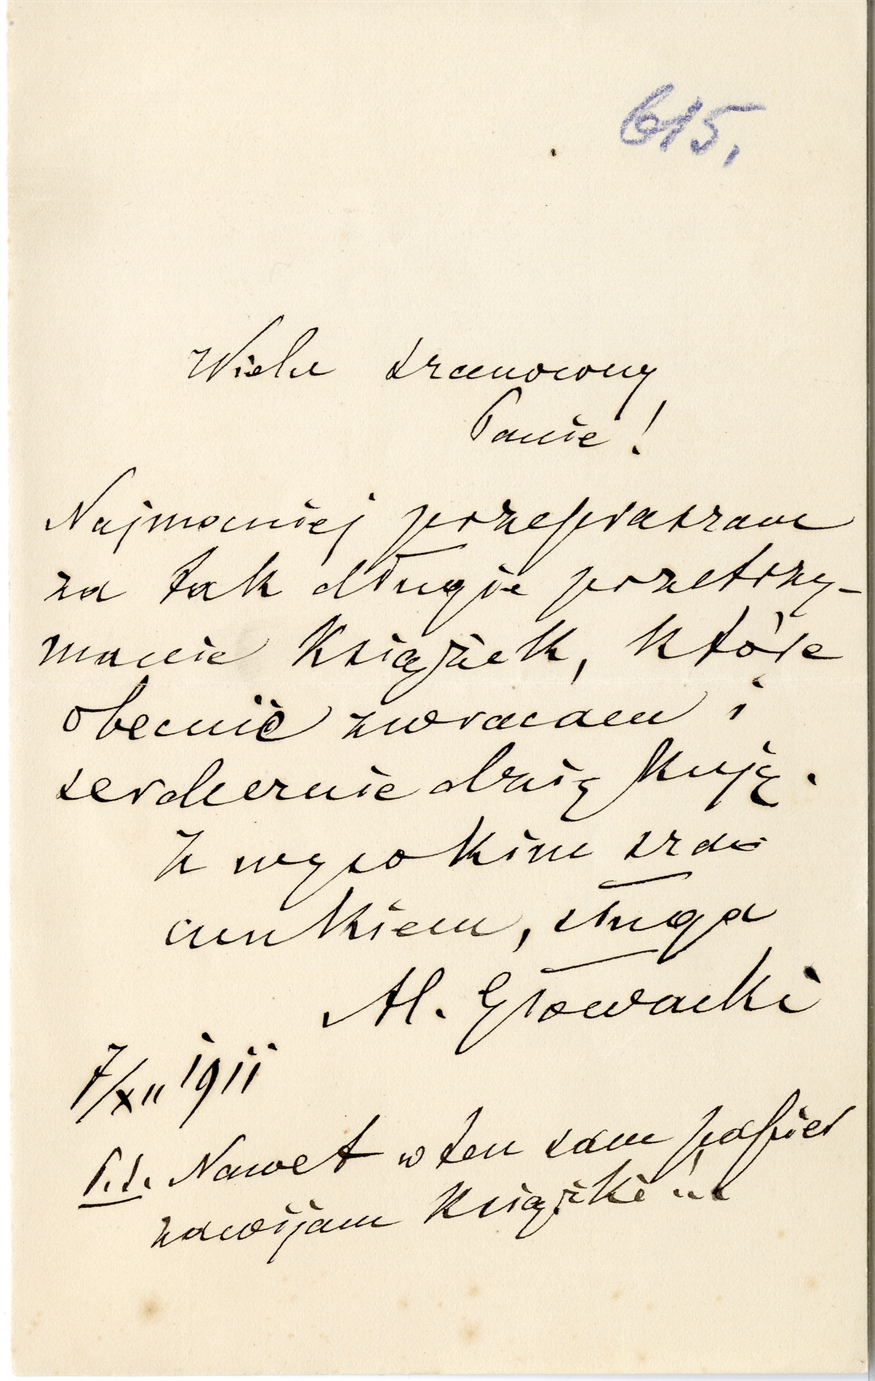 615.
Wielce szanowny
Panie!
Najmocniej przepraszam
za tak długie przetrzy-
manie książek, które
obecnie zwracam i
serdecznie dziękuję.
Z wysokim sza-
cunkiem, sługa
Al. Głowacki
7/XII 1911
P.S. Nawet w ten sam papier
zawijam książki!..